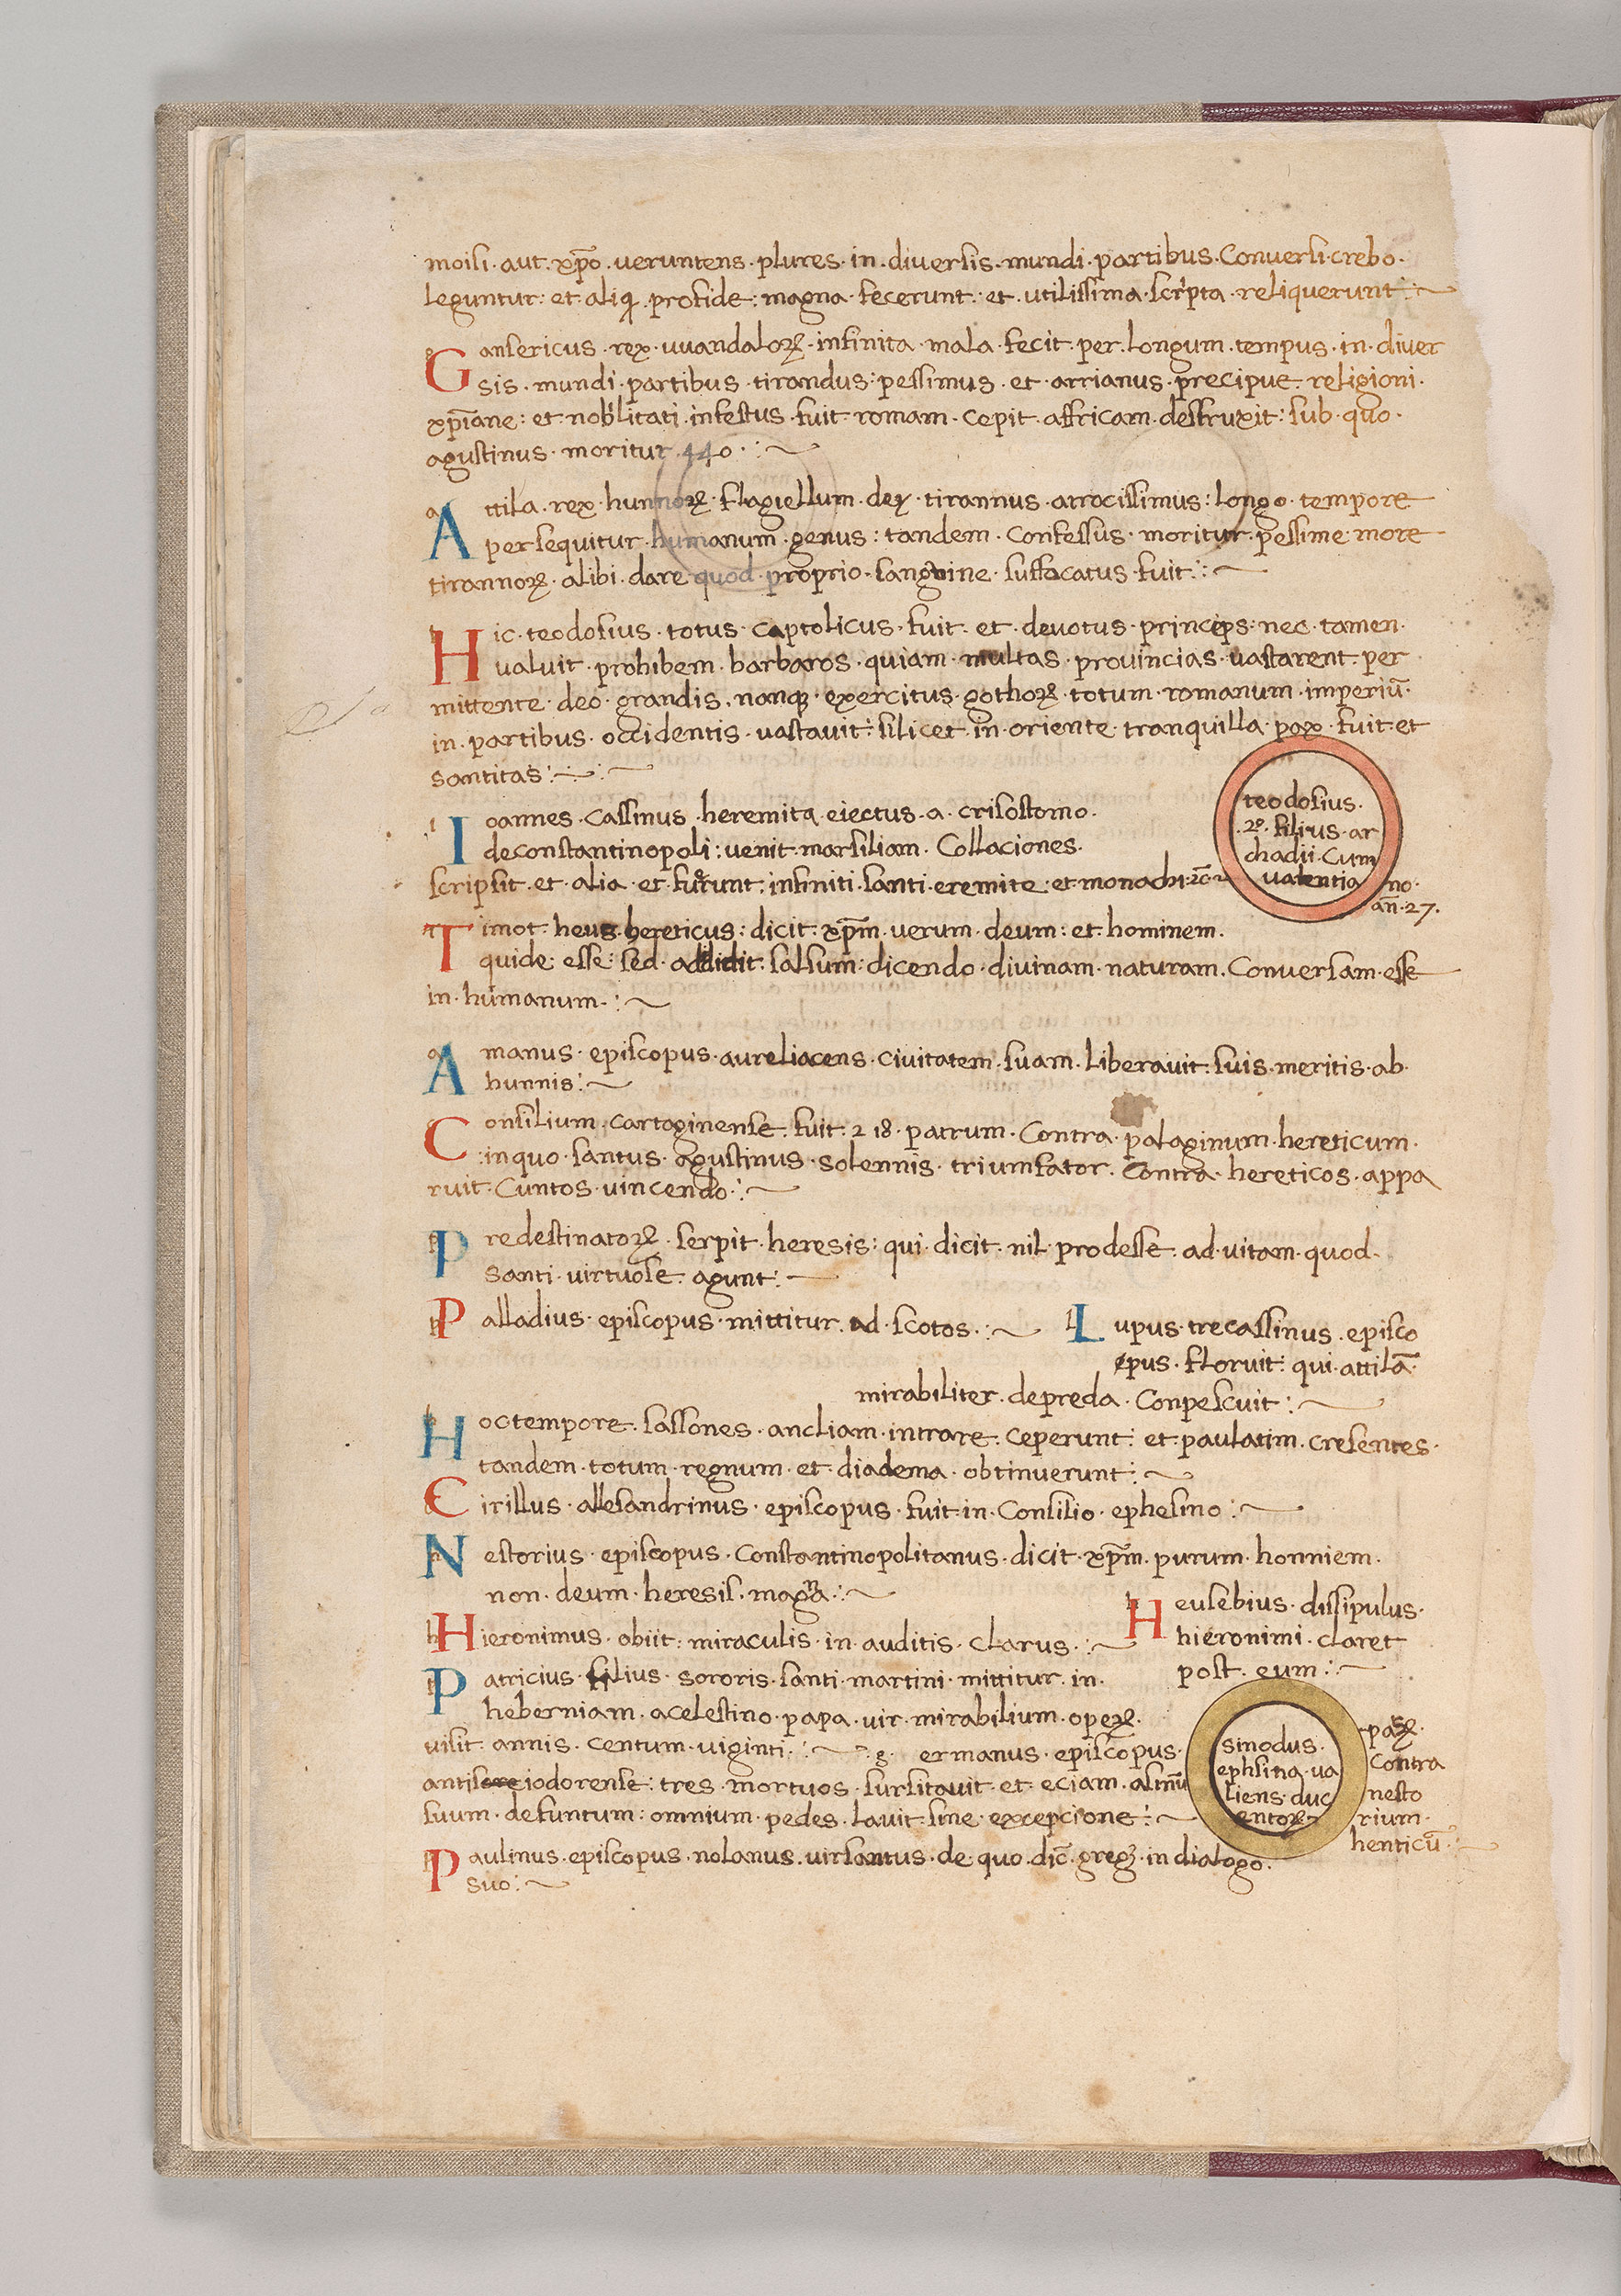 moisi · aut · xp̄o · veruntens · plures · in · diversis · mundi · partibus · Conversi · crebo ·
leguntur : et · aliqi · profide : magna · fecerunt : et · utilissima · scripta · reliquerunt :~
Gansericus · rex · uuandaloꝝ · infinita · mala · fecit · per · longum · tempus · in · diver
sis · mundi · partibus · tirandus : pessimus · et · arrianus · precipue · religioni ·
xp̄iane : et · nobilitati · infestus · fuit · romam · cepit · affricam · destruxit : sub · quo ·
agustinus · moritur · 440 · :~
Attila · rex · hunnoꝝ · flagiellum · dey · tirannus · atrocissimus : longo · tempore
persequitur · humanum · genus : tandem · Confessus · moritur · pessime more
tirannoꝝ · alibi · dare quod · proprio · sanguine · suffacatus · fuit :~
Hic · teodosius · totus · captolicus · fuit · et · devotus · princeps : nec · tamen ·
valuit · prohibem · barbaros · quiam · multas · provincias · vastarent · per
mittente · deo · grandis · nanqꝫ · exercitus · gothoꝝ · totum · romanum · imperiū ·
in · partibus · occidentis · vastavit : silicet · in · oriente · tranquilla · pax · fuit · et
santitas :~
Ioannes · Cassinus · heremita · eiectus · a · crisostomo ·
deconstantinopoli : venit · marsiliam · Collaciones ·
scripsit · et · alia · et · fuerunt : infiniti · santi · eremite · et · monachi · ⁊c̄ ~
teodosius ·
· 2º · filius · ar
chadii · Cum
valentia no ·
an̄ · 27 ·
Timot · heus · hereticus : dicit · xp̄m · verum · deum : et · hominem ·
quide · esse : sed · addidit · falsum : dicendo · divinam · naturam · Conversam · esse
in · humanum · :~
Amanus · episcopus · aureliacens · civitatem · suam · liberavit · suis · meritis · ab ·
hunnis :~
Consilium · Cartaginense · fuit · 2 18 · patrum · Contra · palaginum · hereticum ·
: inquo · santus · agustinus · solennis · triumfator · Contra · hereticos · appa
ruit · Cuntos · vincendo · :~
Predestinatoꝝ · serpit · heresis : qui · dicit · nil · prodesse · ad · vitam · quod ·
santi · virtuose · agunt :~
Palladius · episcopus · mittitur · ad · scotos · :~
Lupus · trecassinus · episco
epus · floruit : qui · attilā ·
mirabiliter · depreda · Conpescuit :~
Hoctempore · sassones · ancliam · intrare · ceperunt : et · paulatim · cresentes ·
tandem · totum · regnum · et · diadema · obtinuerunt :~
Cirillus · allesandrinus · episcopus · fuit · in · Consilio · ephesino :~
Nestorius · episcopus · Constantinopolitanus · dicit · xp̄m · purum · honniem ·
non · deum · heresis · magna :~
Hieronimus · obiit : miraculis · in · auditis · clarus · :~
Heusebius · dissipulus ·
hieronimi · claret
post · eum :~
Patricius · filius · sororis · santi · martini · mittitur · in ·
heberniam · acelestino · papa · vir · mirabilium · opeꝝ ·
visit · annis · centum · viginti · :~ · g · ermanus · episcopus ·
antiscreiodorense : tres · mortuos · sursitavit · et · eciam ·
suum · defuntum : omnium · pedes · lavit · sine · excepcione :~
sinodus ·
ephsina · va
liens · duc
entoꝝ
paꝝ ·
Contra
nesto
rium ·
henticū :~
Paulinus · episcopus · nolanus · virsantus · de · quo · dic̄ · gregꝫ · in dialogo ·
suo :~